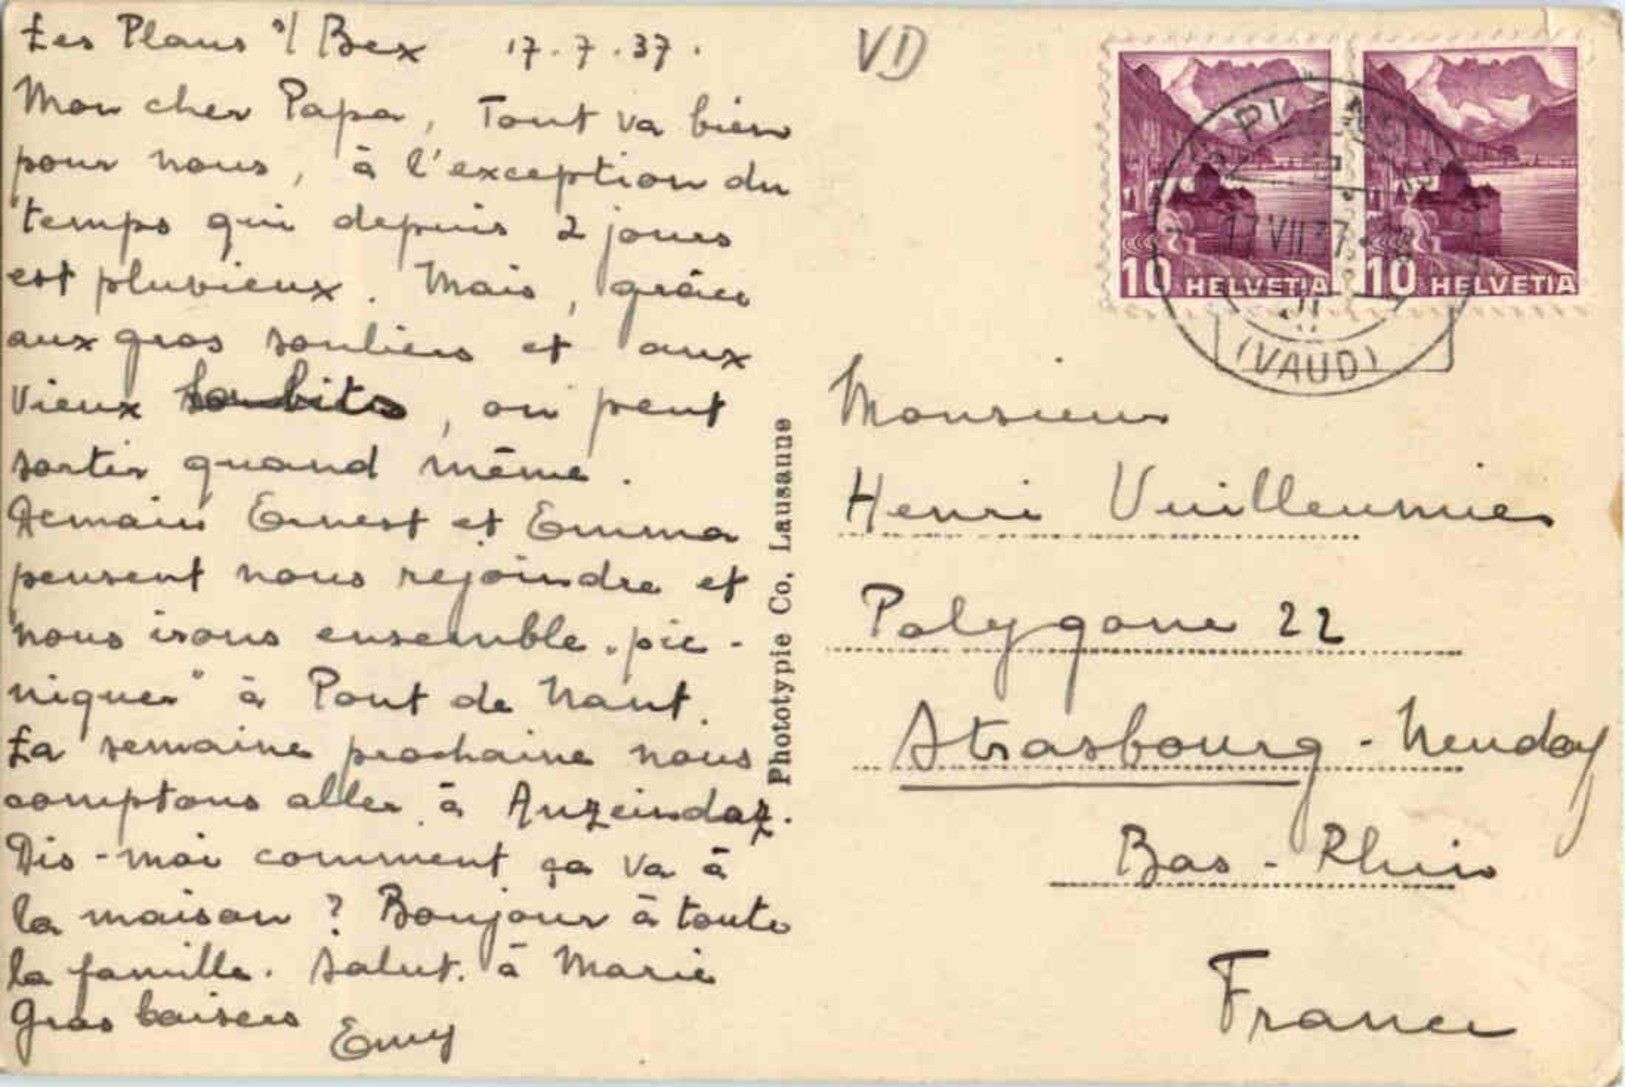 Les Plans s/ Bex 17.7.37.
Mon cher Papa, Tout va bien
pour nous, à l'exception du
temps qui depuis 2 jours
est pluvieux. Mais, grâce
aux gros souliers et aux
vieux habits, on peut
sortir quand même.
Demain Ernest et Emma
pensent nous rejoindre et
nous irons ensemble „pic-
niquer" à Pont de Nant.
La semaine prochaine nous
comptons aller à Anzeindaz.
Dis-moi comment ça va à
la maison ? Bonjour à toute
la famille. Salut à Marie
Gros baisers Emy
Phototypie Co. Lausanne
VD
10 HELVETIA 10 HELVETIA
PLANS
17 VII 37
(VAUD)
Monsieur
Henri Vuilleumier
Polygone 22
Strasbourg - Neudorf
Bas-Rhin
France